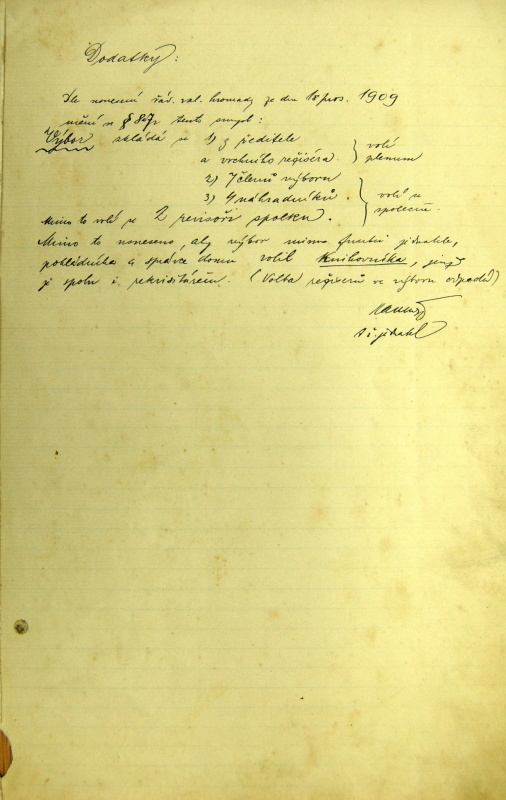 Dodatky:
Dle usnesení řád. val. hromady ze dne 18 pros. 1909
mění se § 8 tento smysl:
Výbor skládá se 1) z ředitele
a vrchního režiséra } volí plenum
2) 7 členů výboru
3) 4 náhradníků } volí se společně.
Mimo to volí se 2 revisoři spolku.
Mimo to usneseno, aby výbor mimo funkci jednatele,
pokladníka a správce domu volil Knihovníka, jenž
je spolu i rekvisitářem. (Volba režiserů ve výboru odpadá)
t. č. jednatel